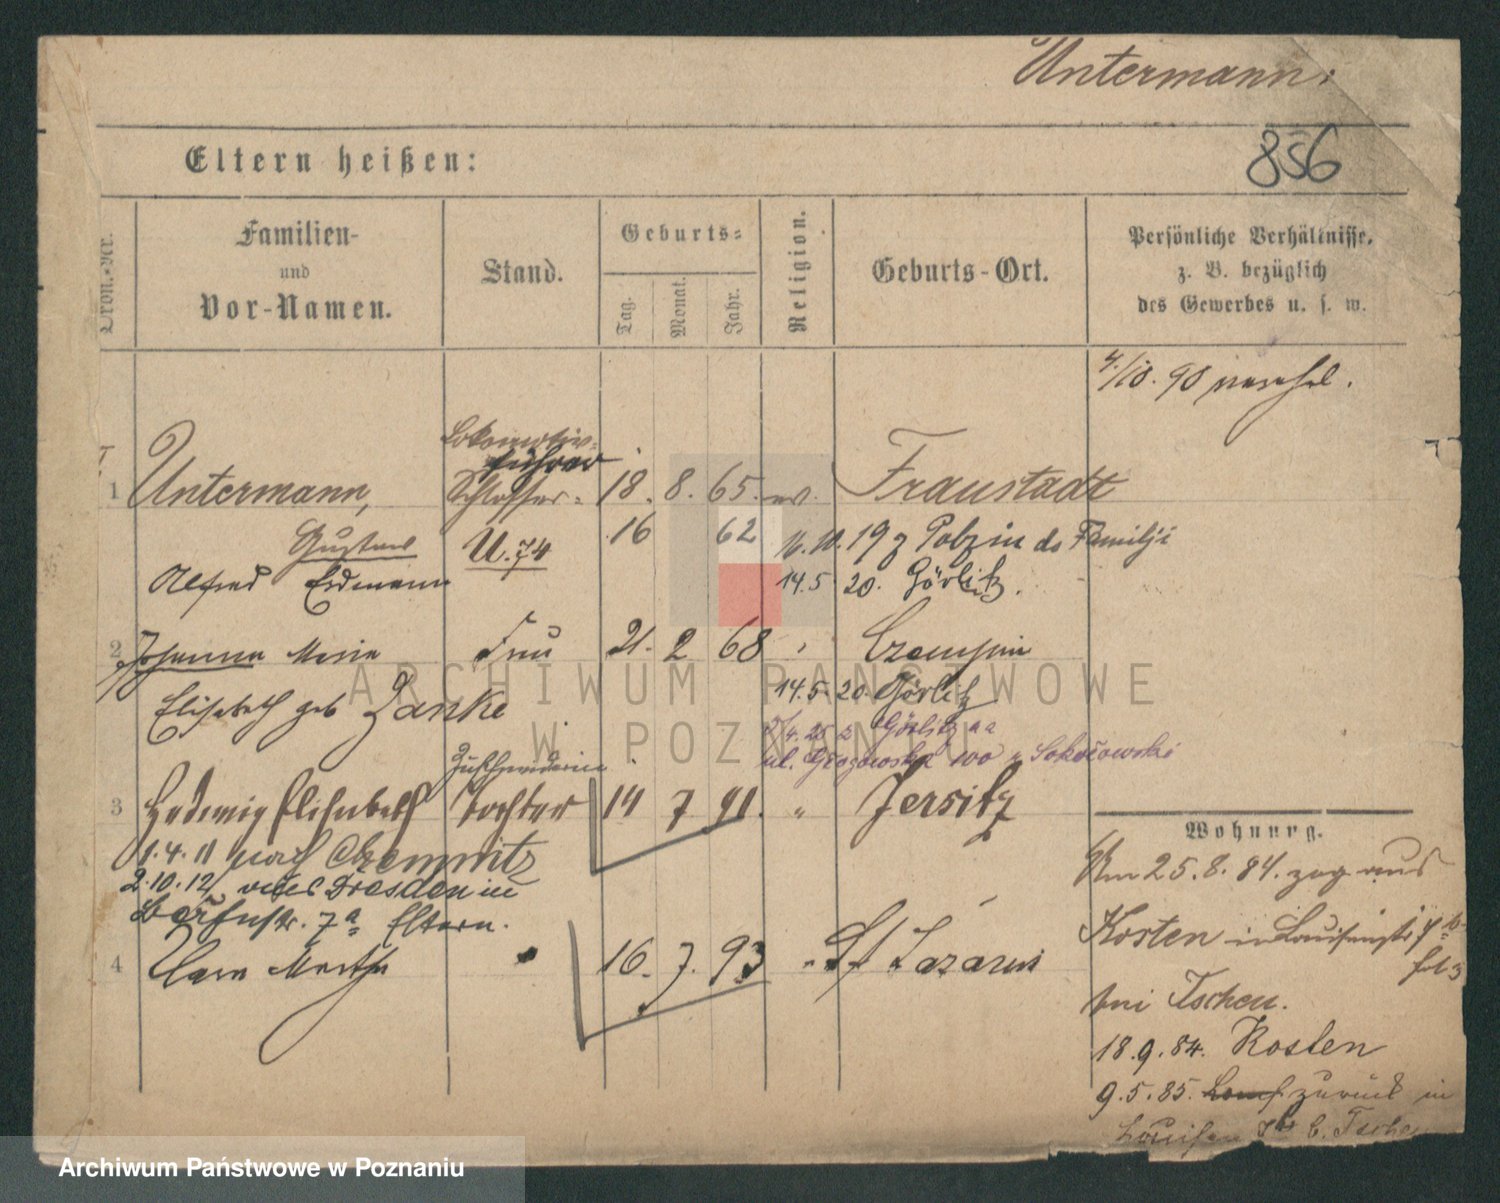 Untermann.
856
Eltern heißen:
Familien-
und
Vor-Namen.
Stand.
Geburts-
Tag.
Monat.
Jahr.
Religion.
Geburts-Ort.
Persönliche Verhältnisse,
z. B. bezüglich
des Gewerbes u. s. w.
4/10. 90 verehel.
Lokomotiv-
führer
1 Untermann, Schlosser 18. 8. 65. ev. Fraustadt
Gustav U. 74 16 62 16.10.19 z Polzin do Familji
Alfred Erdmann 14.5 20. Görlitz.
2 Johanna Marie Frau 21. 2 68 Czempin
14.5.20 Görlitz
Elisabeth geb Zanke
Görlitz
ul. Głogowska 100
3 Hedwig Elisabeth Tochter 14 7 91. " Jersitz
Wohnung.
1.4.11 nach Chemnitz
Am 25.8.84. zog aus
2.10.12 Dresden
7a Eltern.
Kosten in Louisenstr
4 Clara Martha 16. 7. 93 St Lazarus
bei Tscheu.
18.9.84. Kosten
9.5.85. zurück in
Louisen Str b. Tscheu
ARCHIWUM PAŃSTWOWE
W POZNANIU
Archiwum Państwowe w Poznaniu